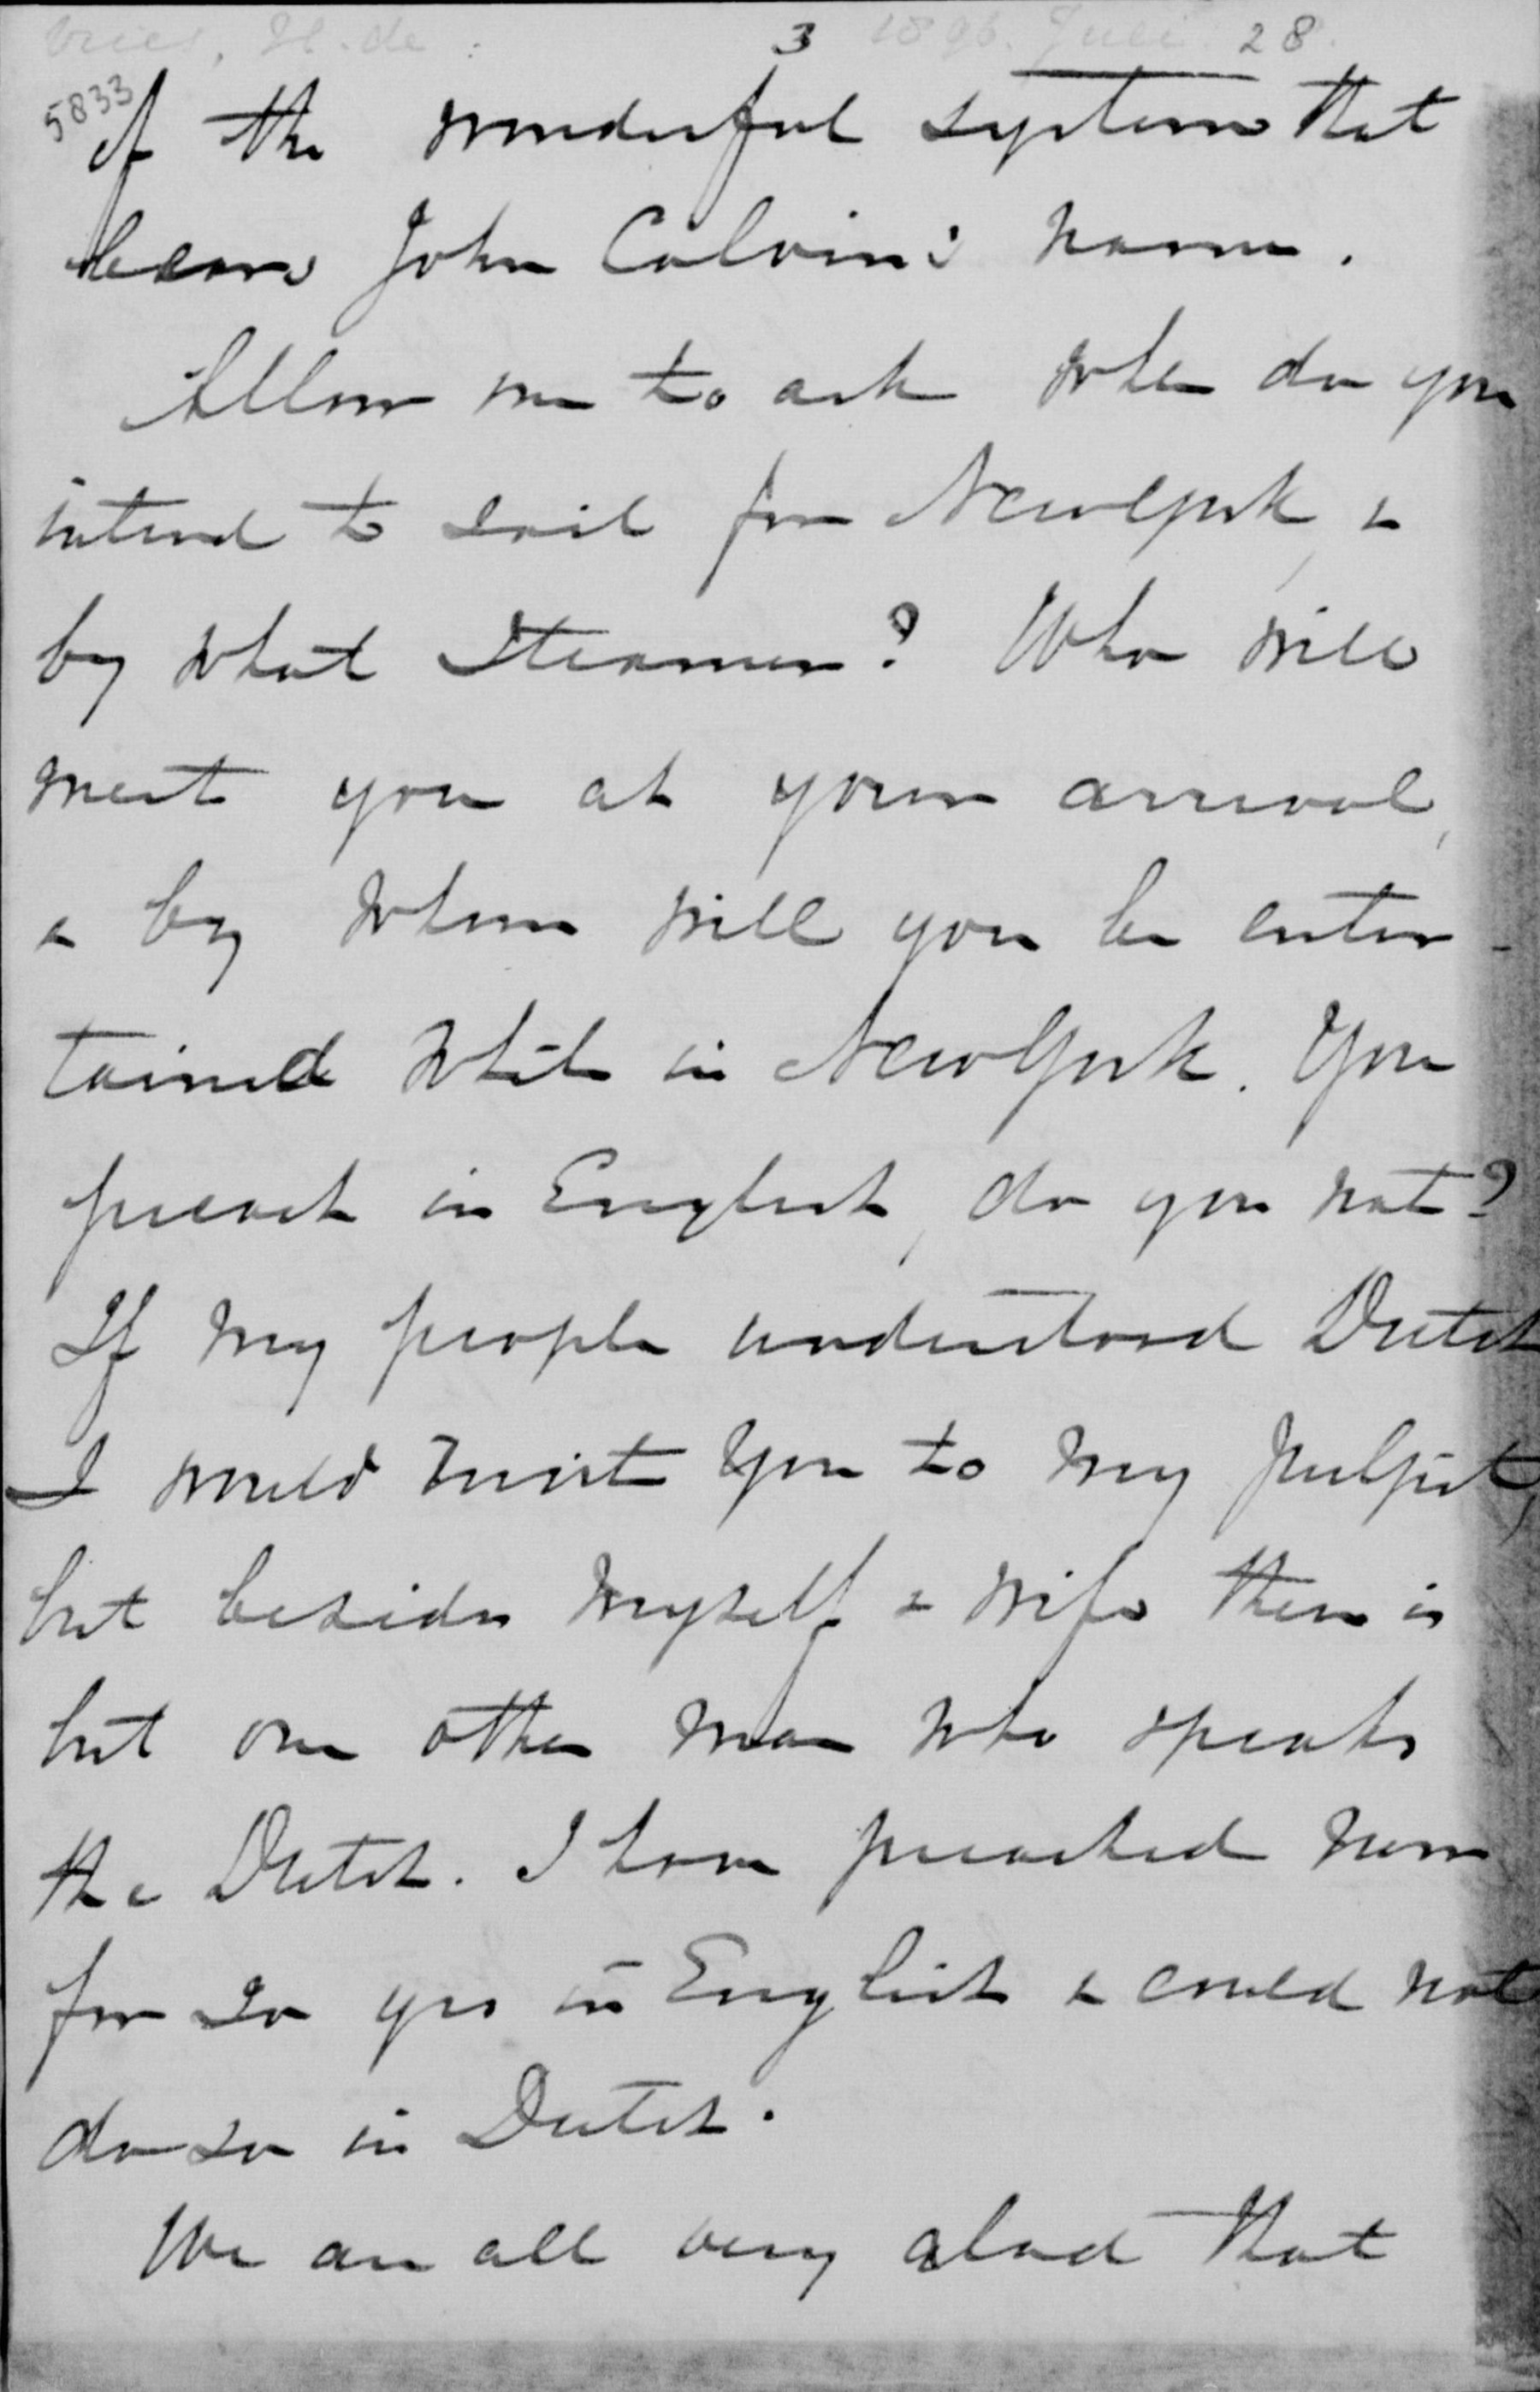 Vries, H. de. 3 1898. Juli 28.
5833
of the wonderful system that
bears John Calvin's name.
Allow me to ask when do you
intend to sail for New York, &
by what Steamer? Who will
meet you at your arrival,
& by whom will you be enter-
tained while in New York. You
preach in English, do you not?
If my people understood Dutch
I would invite you to my pulpit,
but besides myself & wife there is
but one other man who speaks
the Dutch. I have preached now
for 20 yrs in English & could not
do so in Dutch.
We are all very glad that